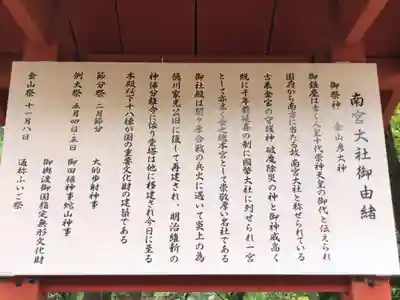 南宮大社御由緒
御祭神 金山彦大神
御鎮座は古く人皇十代崇神天皇の御代と伝えられ
国府から南方に当たる故南宮大社と称せられている
古来金宝の守護神 破魔除災の神と御神威高く
既に千年前延喜の制に国幣大社に列せられ一宮
として亦金の総本宮として崇敬厚い名社である
御社殿は関ヶ原合戦の兵火に遇いて炎上の為
徳川家光公旧に復して再建され、明治維新の
神佛分離令に依り堂塔は他に移建され今日に至る
本殿以下十八棟が国の重要文化財の建築である
節分祭 二月節分 大的歩射神事
例大祭 五月四日・五日 御田植神事蛇山神事
御輿渡御国指定無形文化財
金山祭 十一月八日 通称ふいご祭